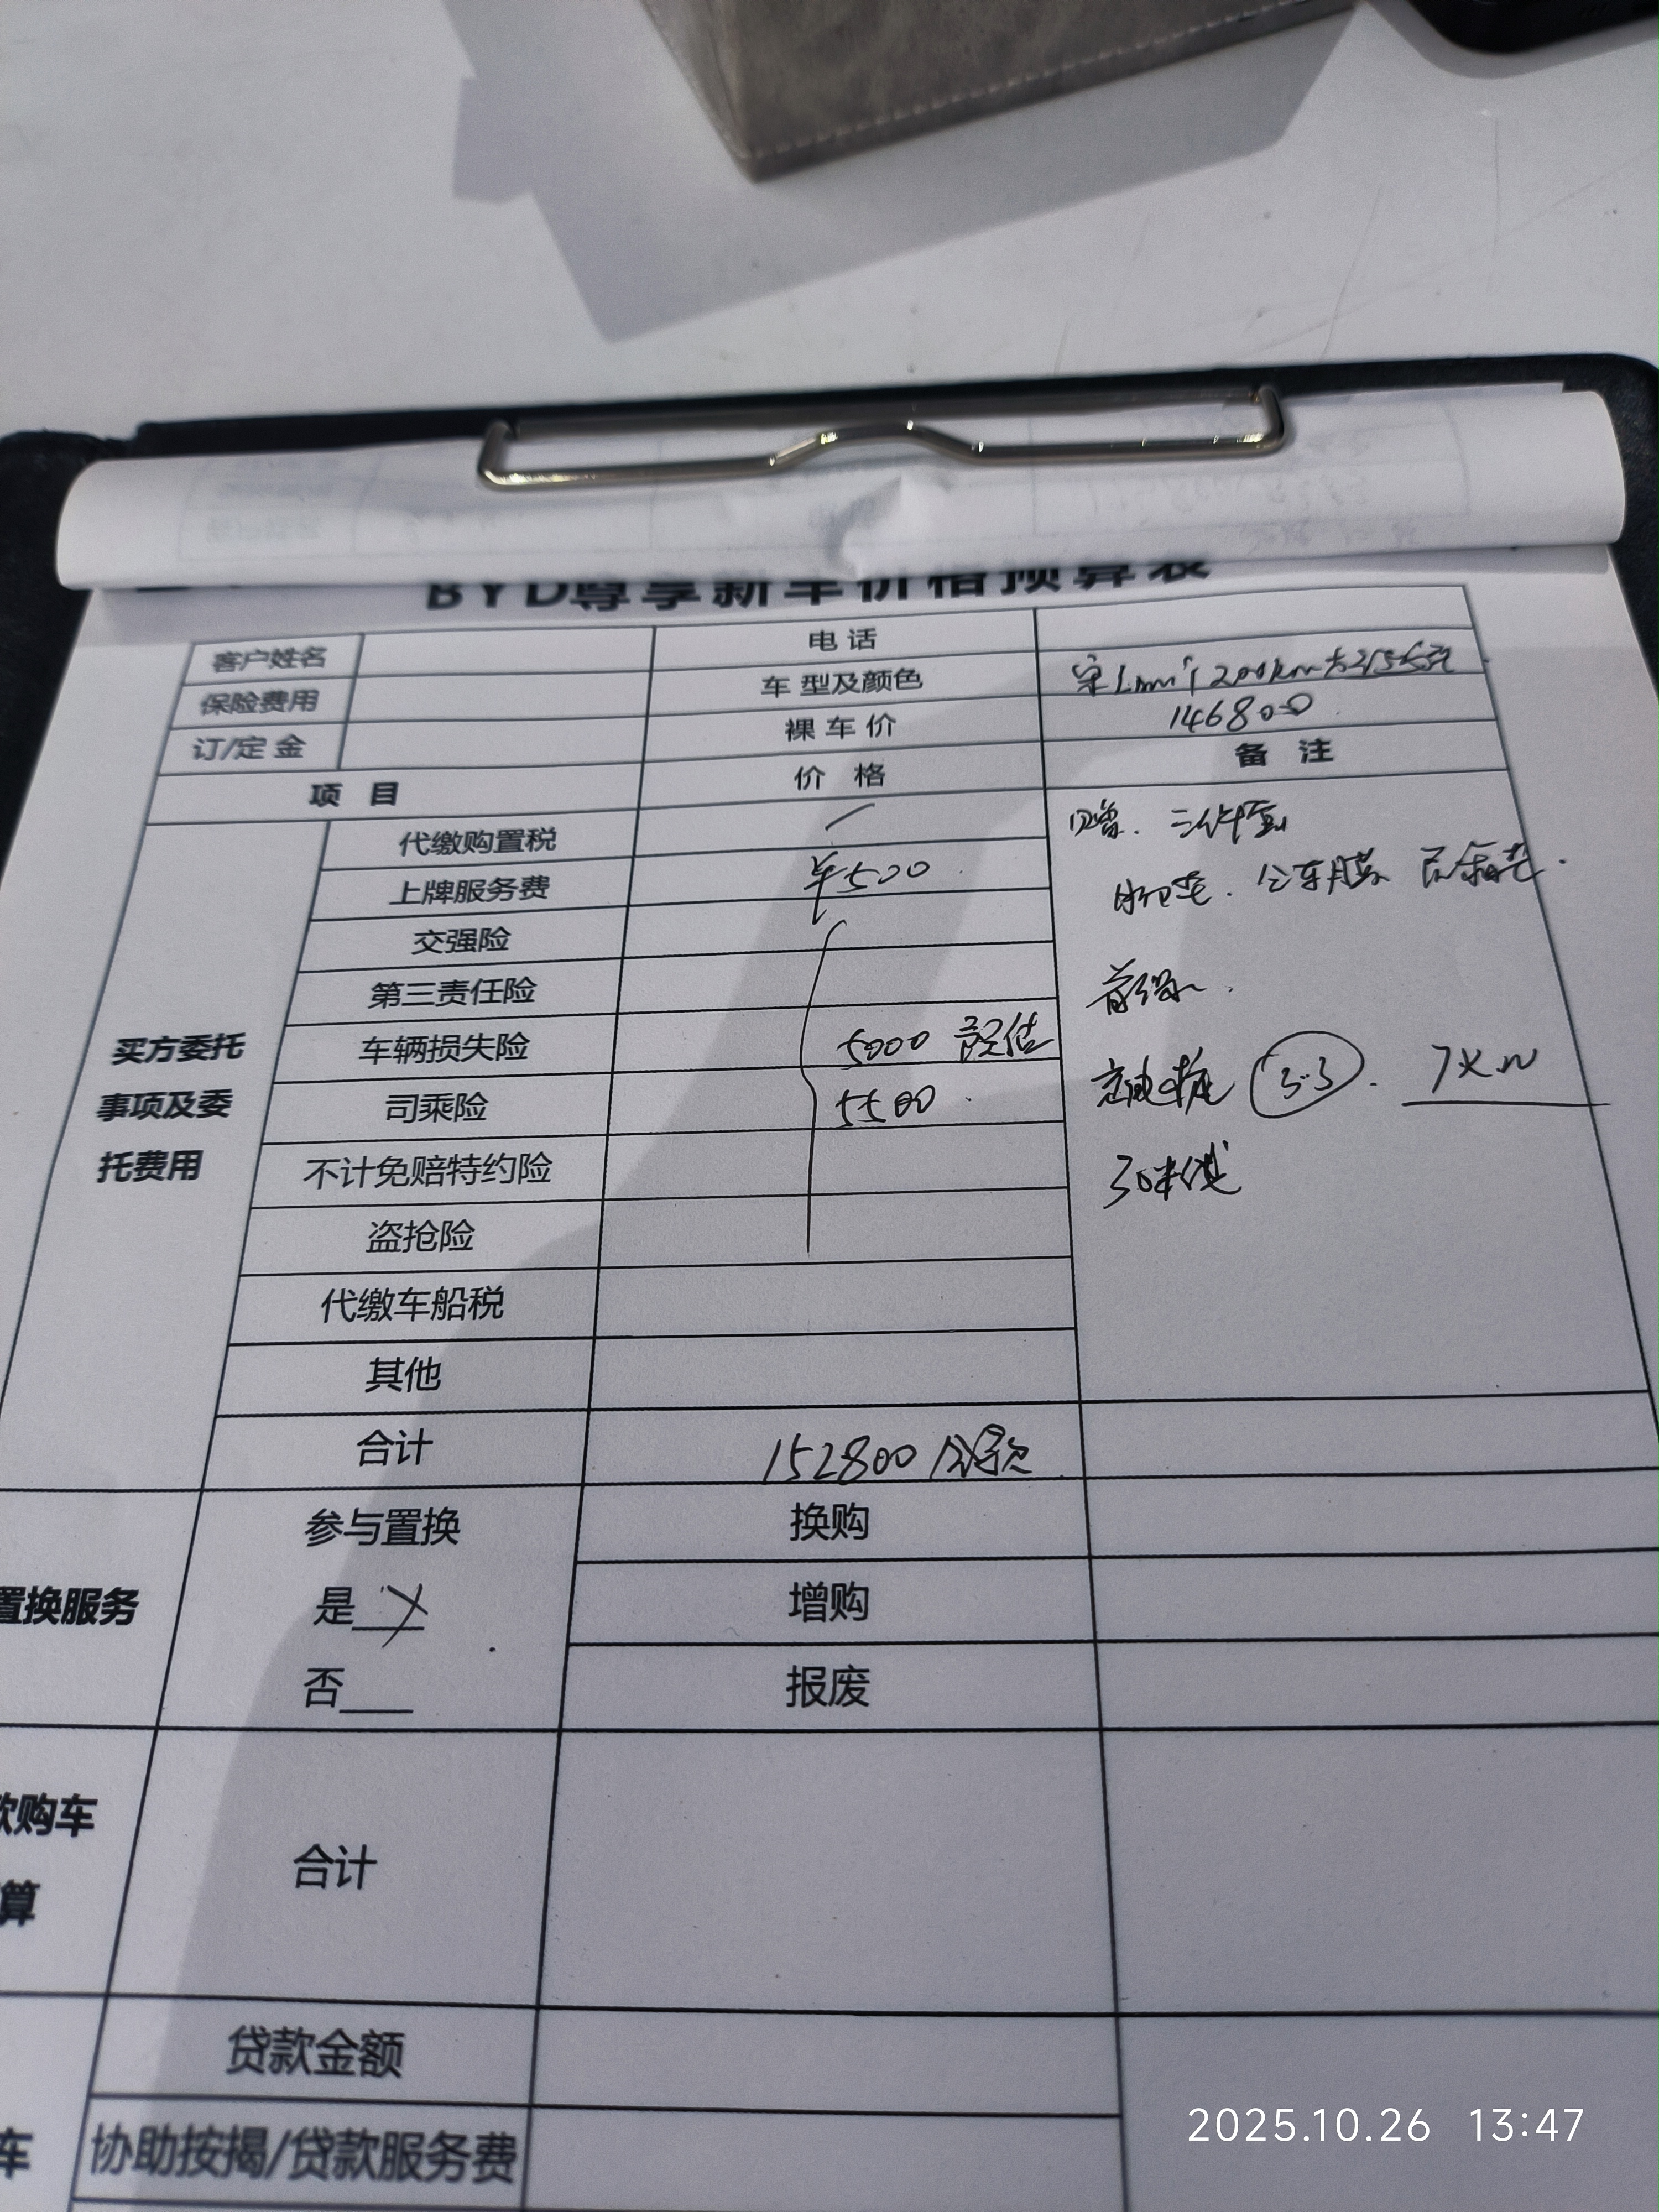 BYD尊享新车价格预算表
客户姓名 电话
保险费用 车型及颜色 宋Ldmi 200km
订/定金 裸车价 146800
项目 价格 备注
买方委托事项及委托费用
代缴购置税
上牌服务费 ¥500
交强险
第三责任险
车辆损失险 5000 预估
司乘险 5500
不计免赔特约险
盗抢险
代缴车船税
其他
合计 152800
三件套
全车膜
首保
充电桩 3.3 7KW
30米线
置换服务 参与置换 换购
是 增购
否 报废
款购车
算
合计
贷款金额
车
协助按揭/贷款服务费
2025.10.26 13:47